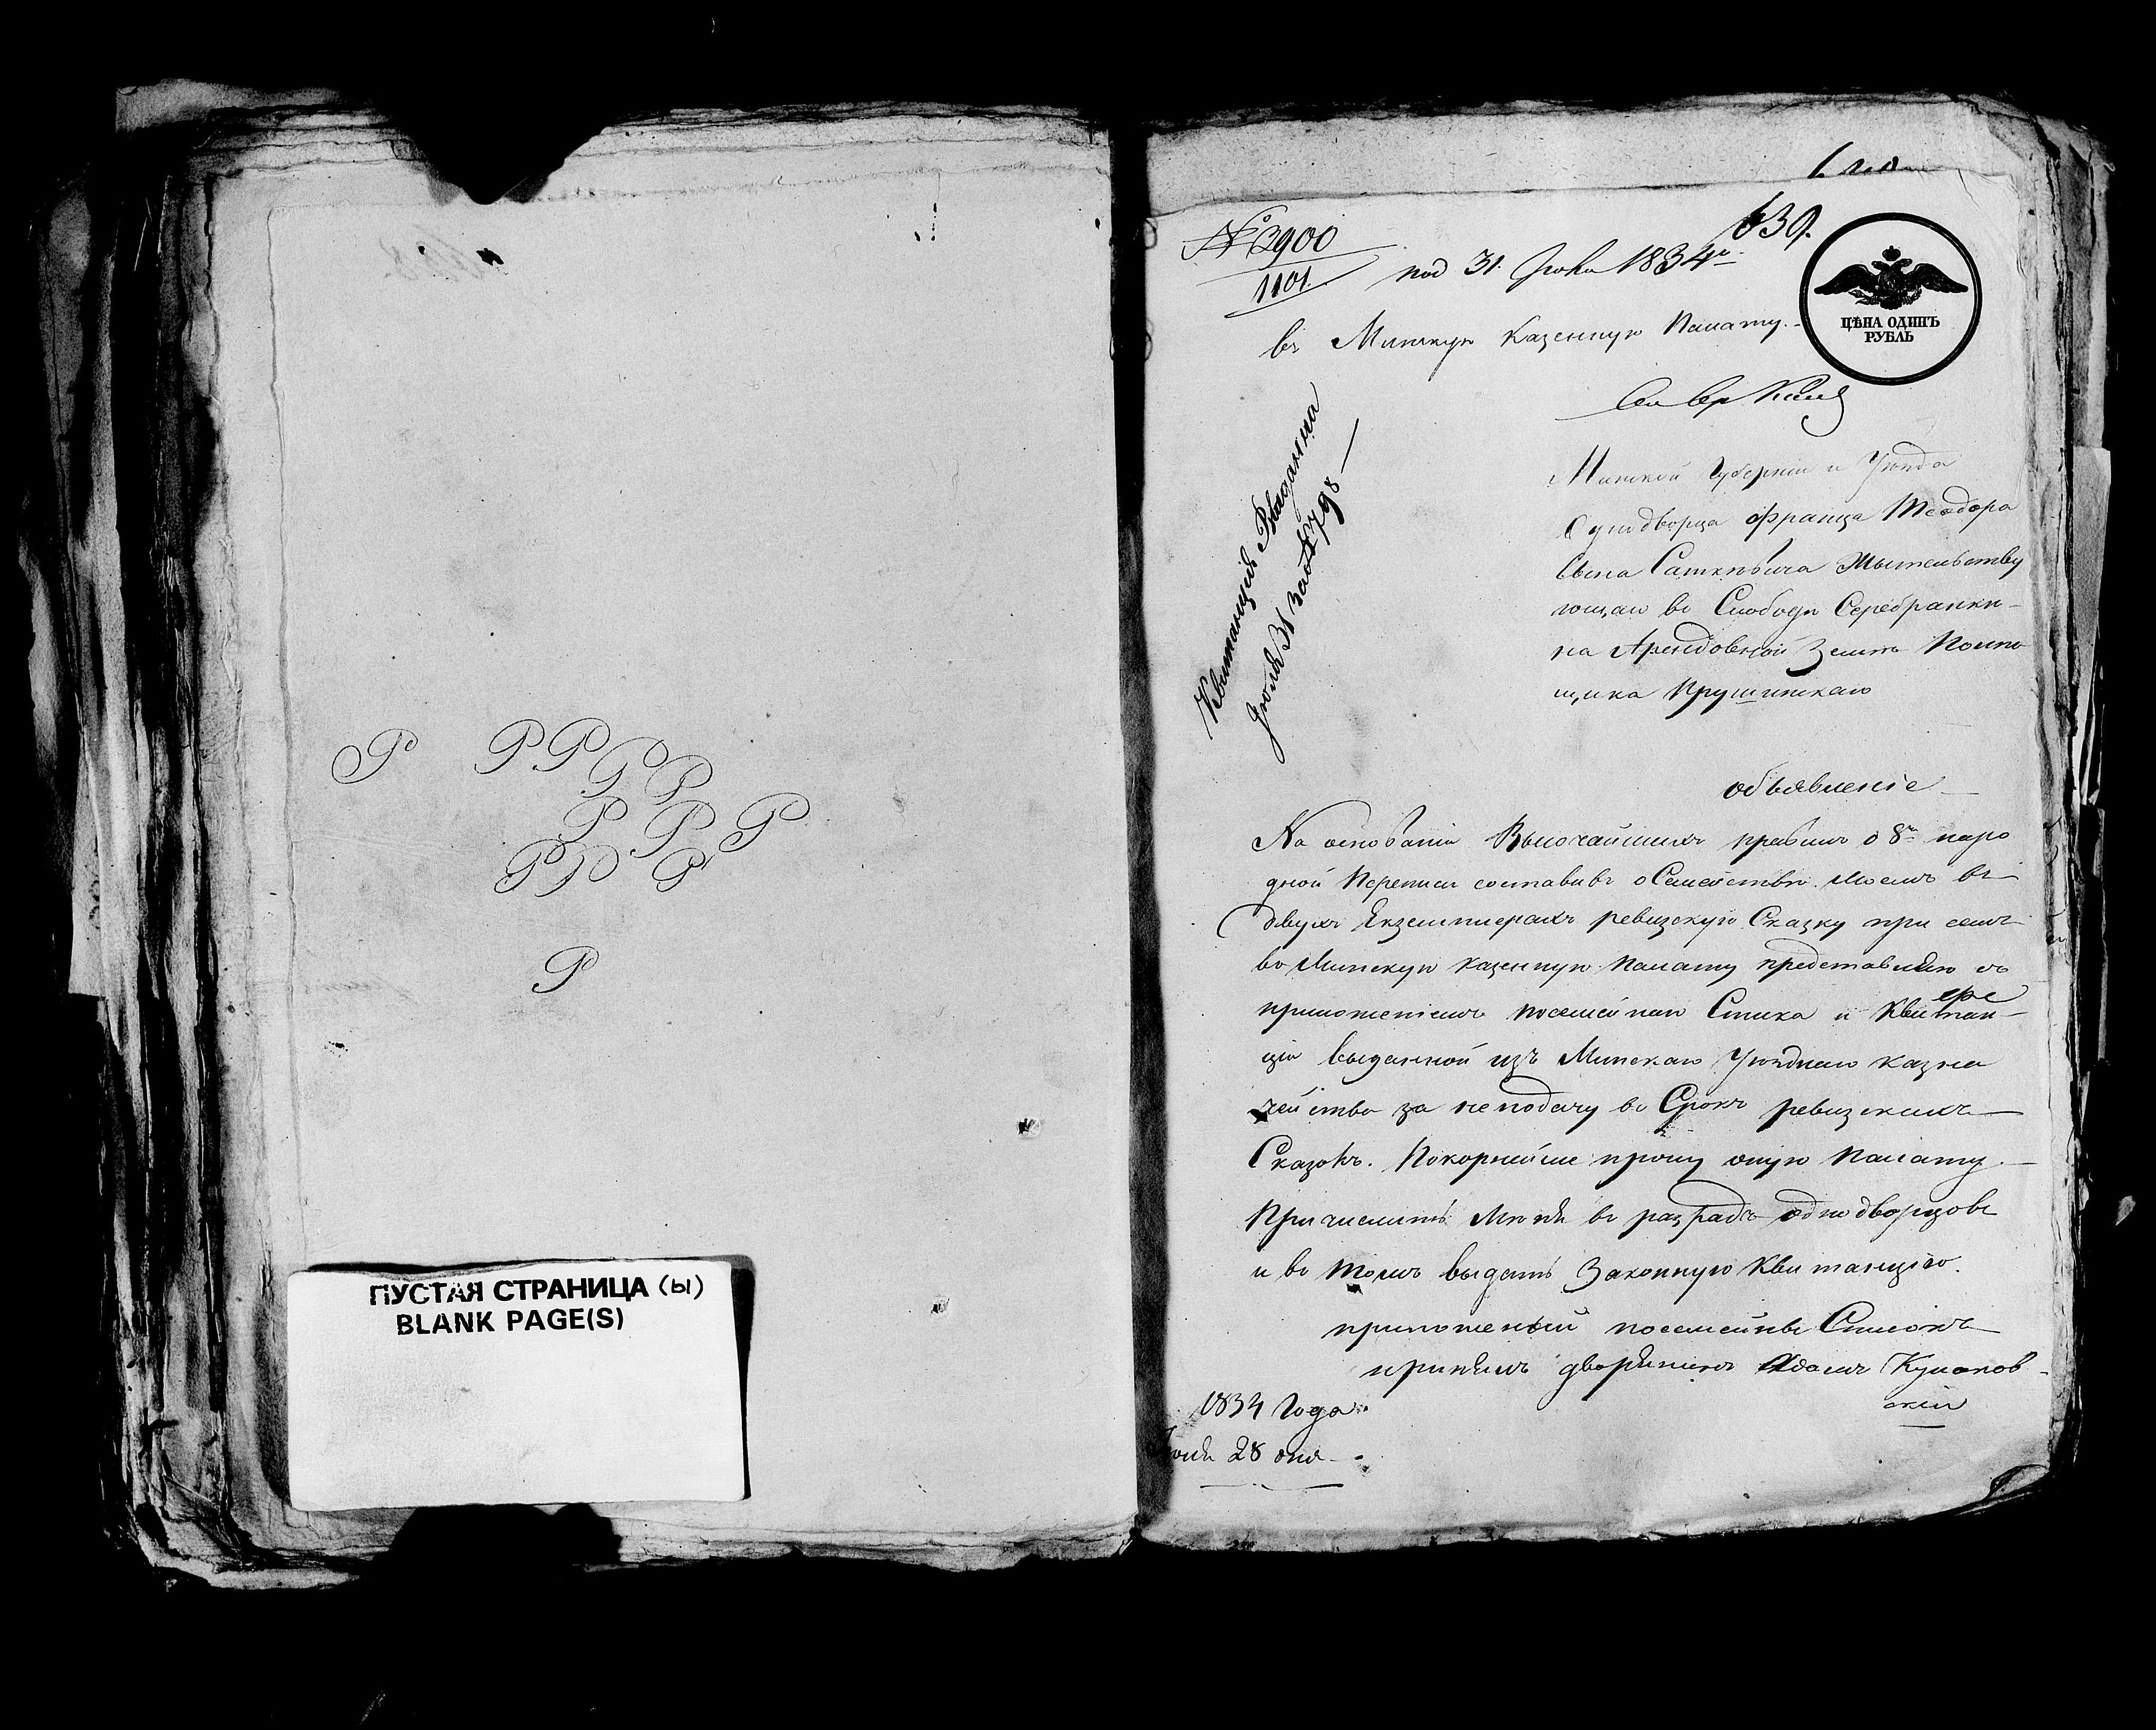 Р Р Р Р Р
Р Р Р
Р Р Р
Р
ПУСТАЯ СТРАНИЦА (ы)
BLANK PAGE(S)
639.
№ 3900
1101.
под 31. 1834го
ЦѢНА ОДИНЪ
РУБЛЬ
въ Минскую Казенную Палату.
Квитанция Выдана
Июля 31 за № 798
Минской Губернии и Уезда
Однодворца Франца Теодора
Сына Жительству
ющаго во Слободе Серебранки
на Арендовной Земле Поме
щика Прушинскаго
объявленіе
На основаніи Высочайшихъ правилъ о 8й наро
дной Переписи составивъ о Семействе Моемъ въ
двухъ Екземплерахъ ревизскую Сказку при семъ
во Минскую казенную Палату представляю съ
приложениемъ посемейнаго Списка и Квитан
ціи выданной изъ Минскаго Уезднаго казна
чейства за неподачу во Срокъ ревизскихъ
Сказокъ. Покорнейше прошу оную Палату
Причислить Меня во разрядъ однодворцовъ
и во томъ выдать Законную Квитанцію.
приложеный посемейны Списокъ
принялъ дворянинъ Адамъ Кулаков
скій
1834 Года
Июля 28 дня